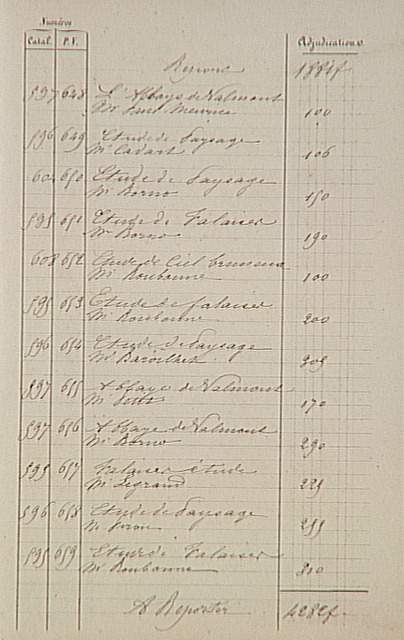 Numéros
Catal. P.V. Adjudications
Report 1881f
597 648 L'Abbaye de Valmont
Mr Paul Meurice 100
596 649 Etude de Paysage
Mr Cadart 106
602 650 Etude de Paysage
Mr Borno 150
595 651 Etude de Falaises
Mr Borno 190
608 652 Etude de Ciel brumeux
Mr Roubanne 100
595 653 Etude de falaises
Mr Roubanne 200
596 654 Etude de Paysage
Mr 305
597 655 Abbaye de Valmont
Mr 170
597 656 Abbaye de Valmont
Mr Borno 290
595 657 Falaises étude
Mr Legrand 225
596 658 Etude de Paysage
Mr 255
595 659 Etude de Falaises
Mr Roubanne 810
A Reporter 4282f